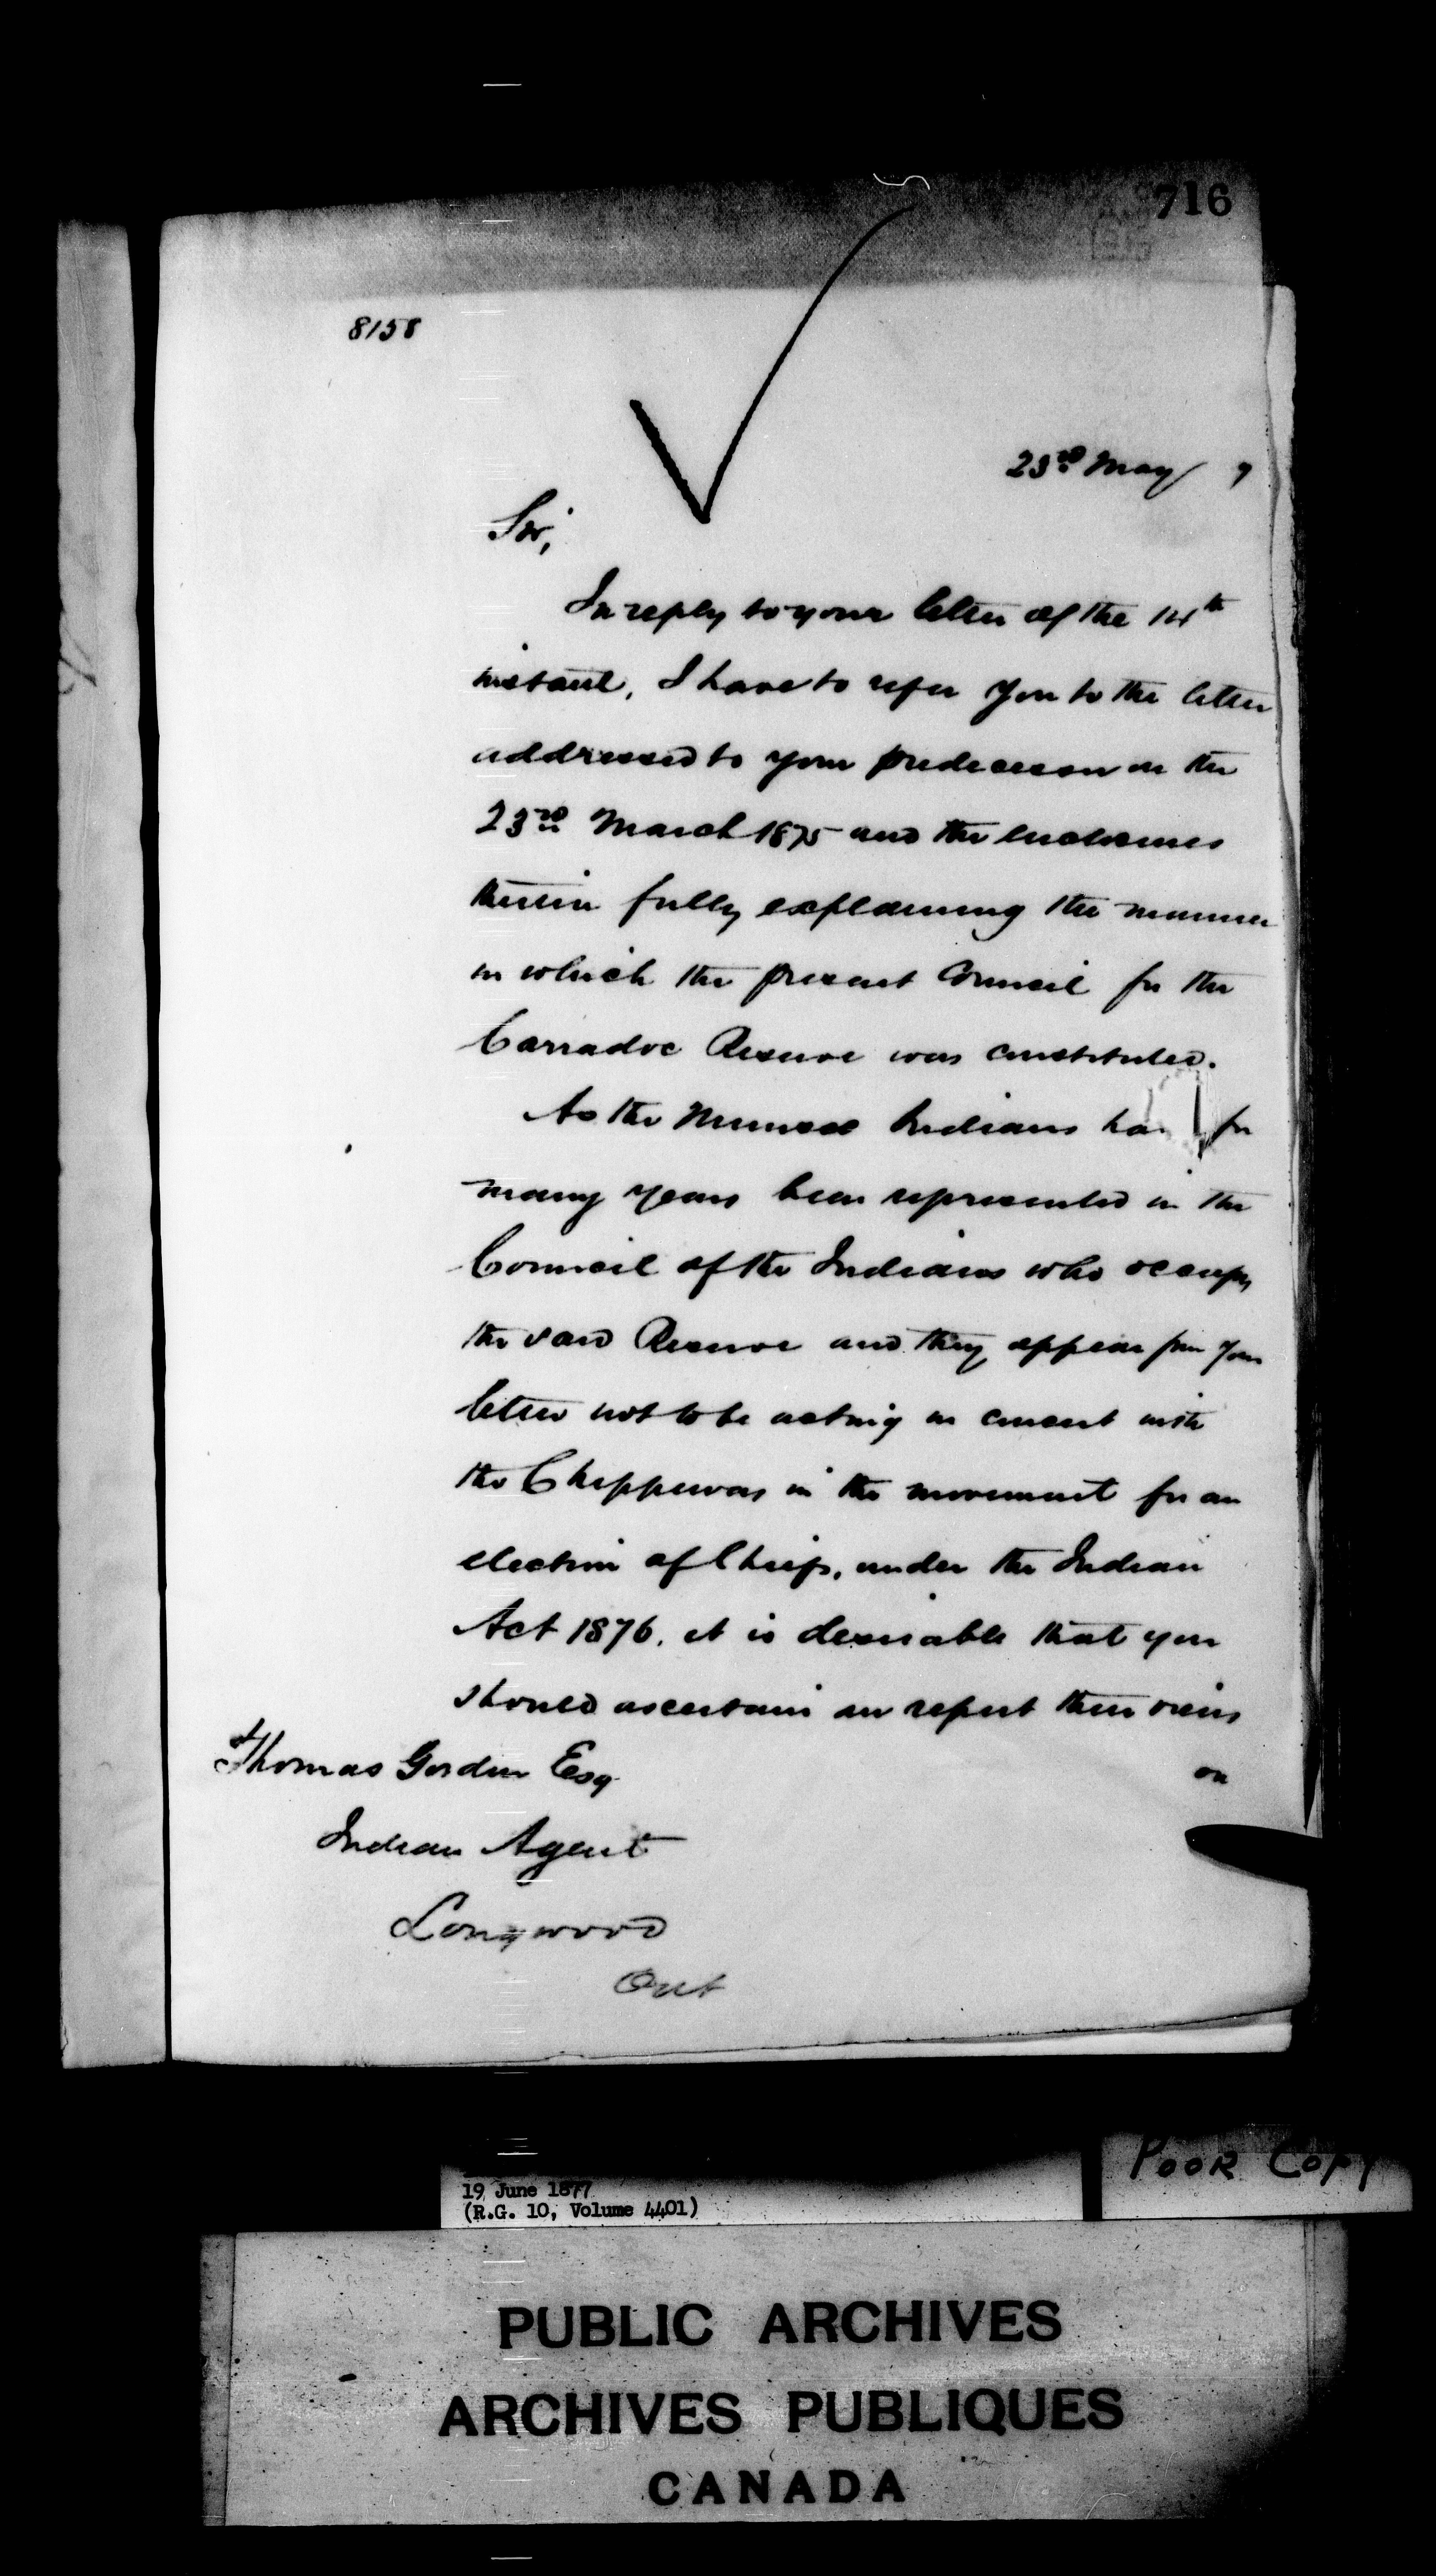 716
8158
23rd May 7
Sir,
In reply to your letter of the 14th
instant, I have to refer you to the letter
addressed to your predecessor on the
23rd March 1875 and the enclosures
therein fully explaining the manner
in which the present Council for the
Carradoc Reserve was constituted.
As the Munsee Indians ha for
many years been represented in the
Council of the Indians who occupy
the said Reserve and they appear from your
letter not to be acting in concert with
the Chippewas in the movement for an
election of Chiefs, under the Indian
Act 1876. it is desirable that you
should ascertain an report their views
on
Thomas Gordon Esq
Indian Agent
Longwood
Ont
POOR COPY
19 June 1877
(R.G. 10, Volume 4401)
PUBLIC ARCHIVES
ARCHIVES PUBLIQUES
CANADA